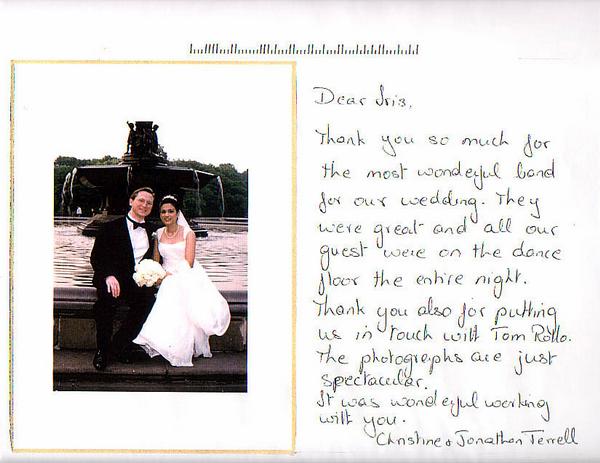 Dear Iris,
Thank you so much for
the most wonderful band
for our wedding. They
were great and all our
guest were on the dance
floor the entire night.
Thank you also for putting
us in touch with Tom Rollo.
The photographs are just
spectacular.
It was wonderful working
with you.
Christine & Jonathan Terrell